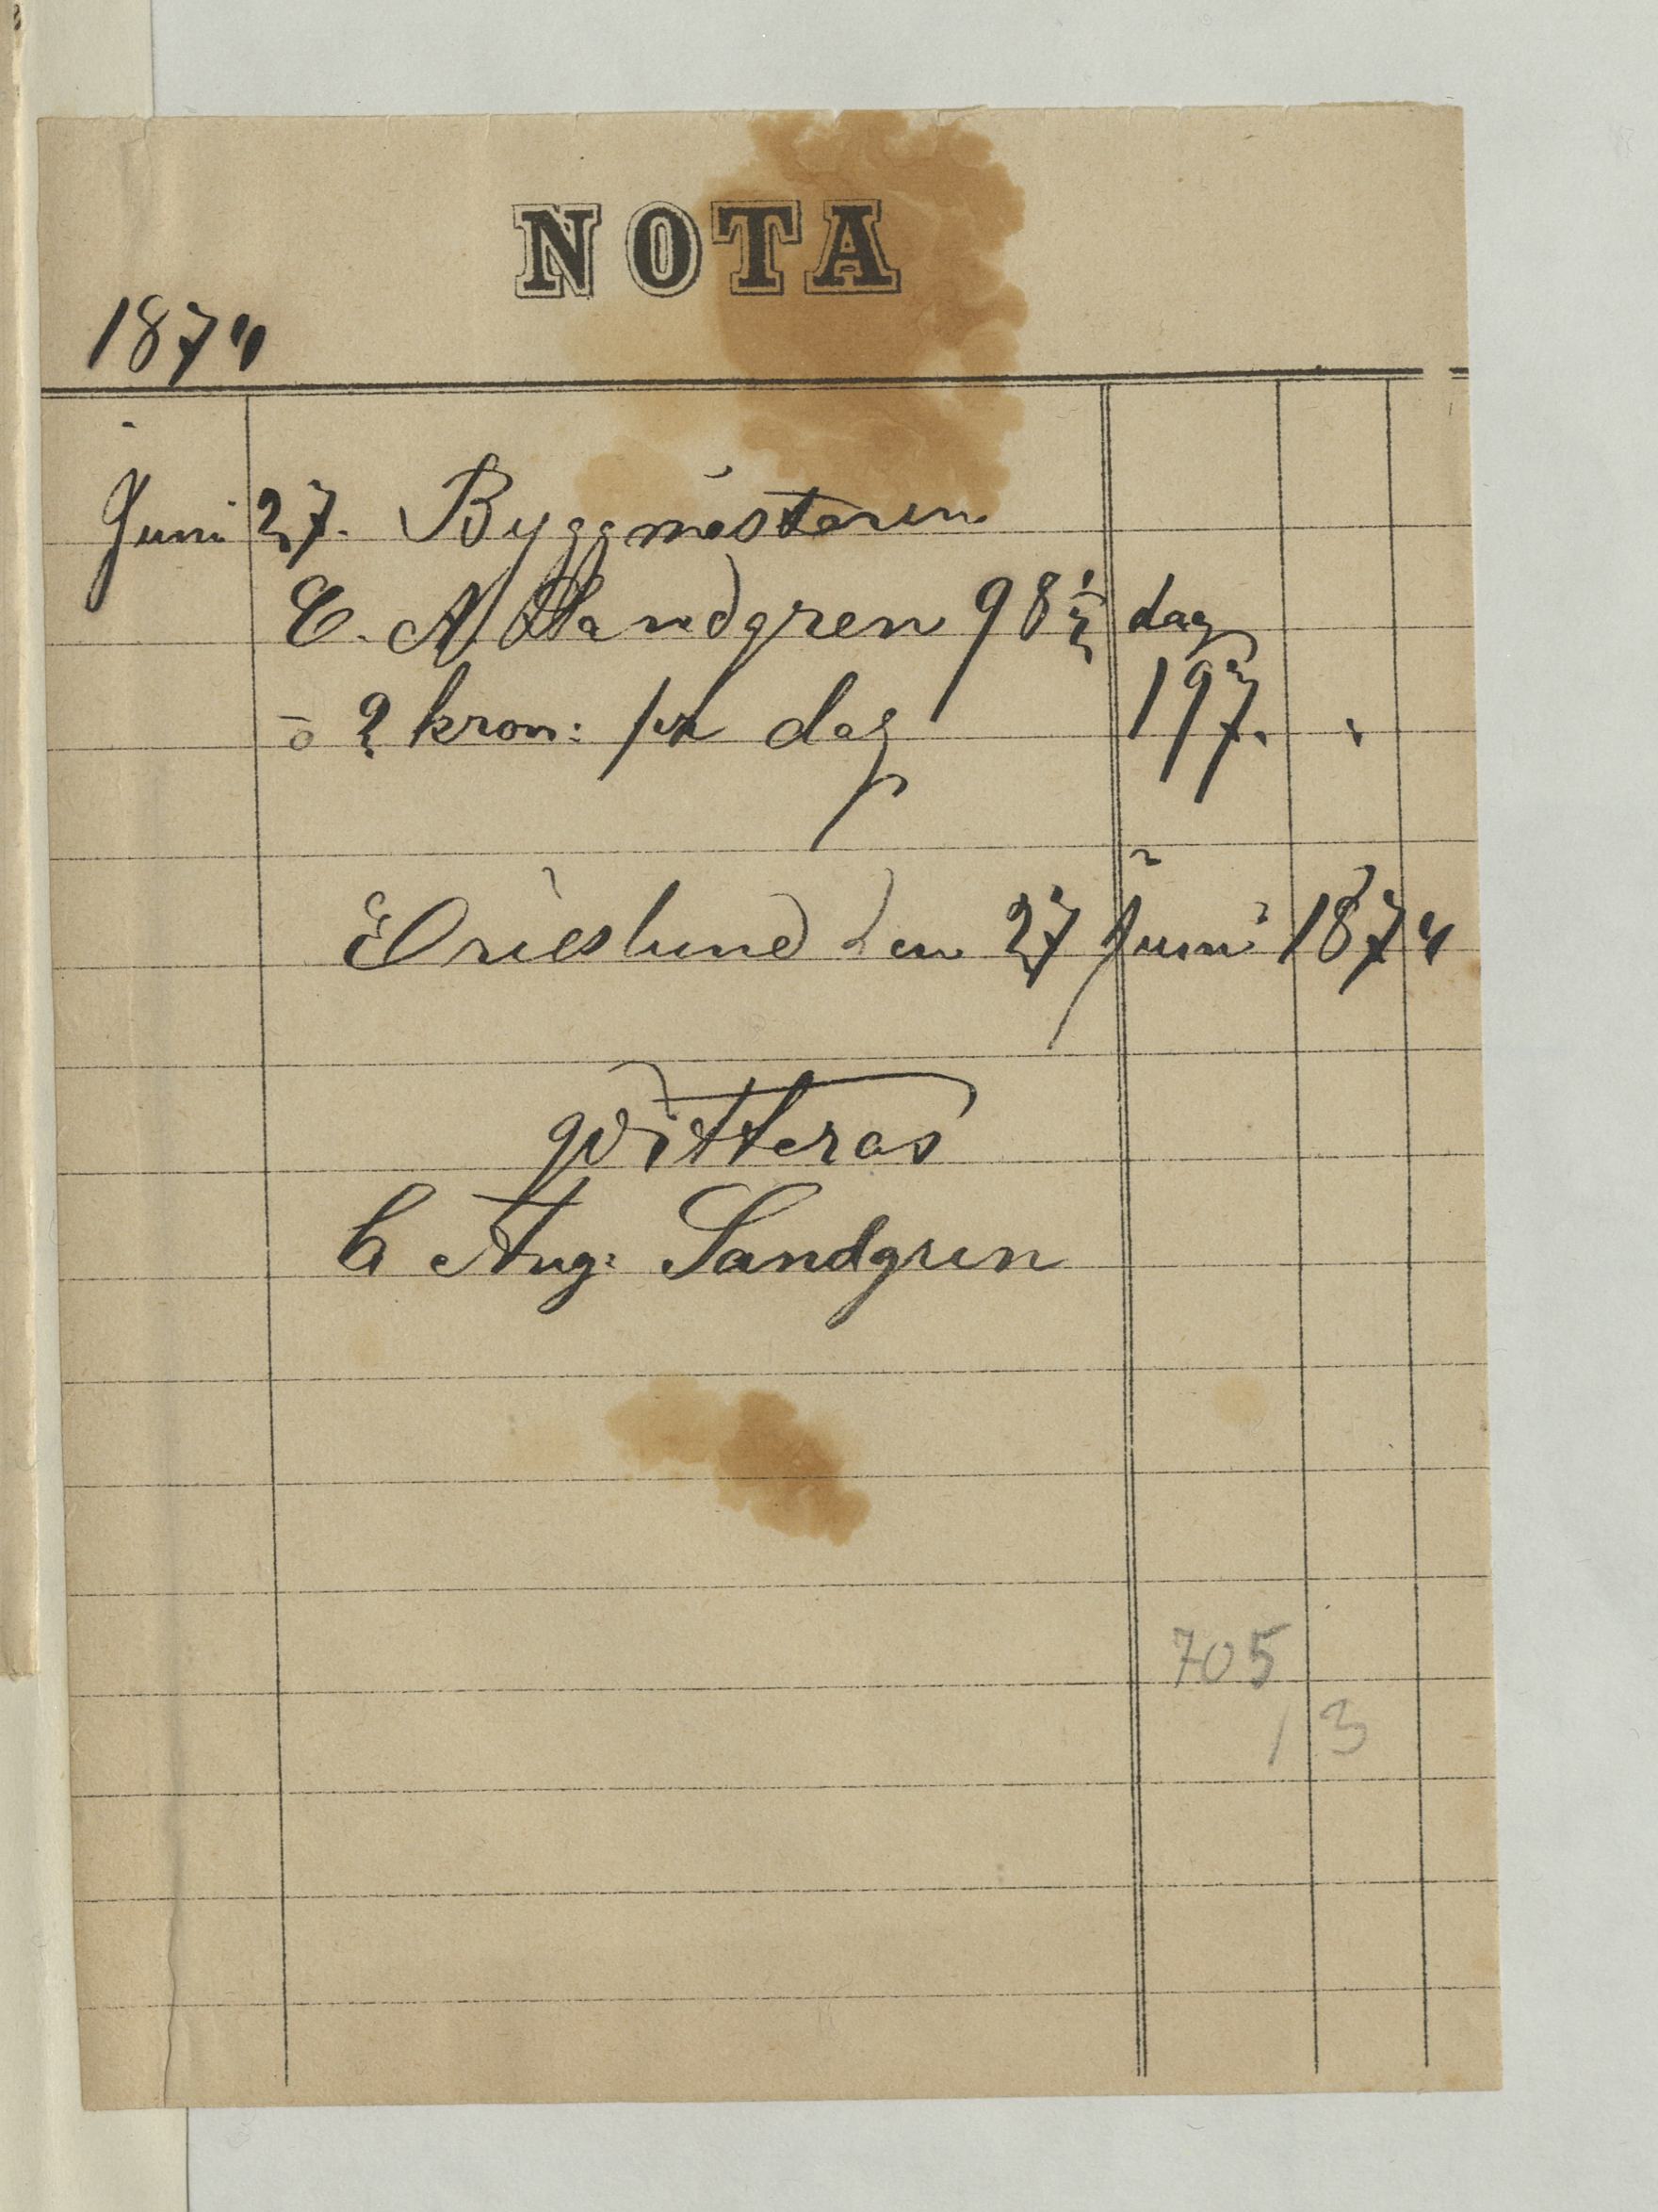 NOTA
1874
Juni 27. Byggmästaren
C. A. Sandgren 98 1/2 dag
a 2 kron: pr dag 197.
den 27 Juni 1874
qvitteras
C Aug: Sandgren
705
/3